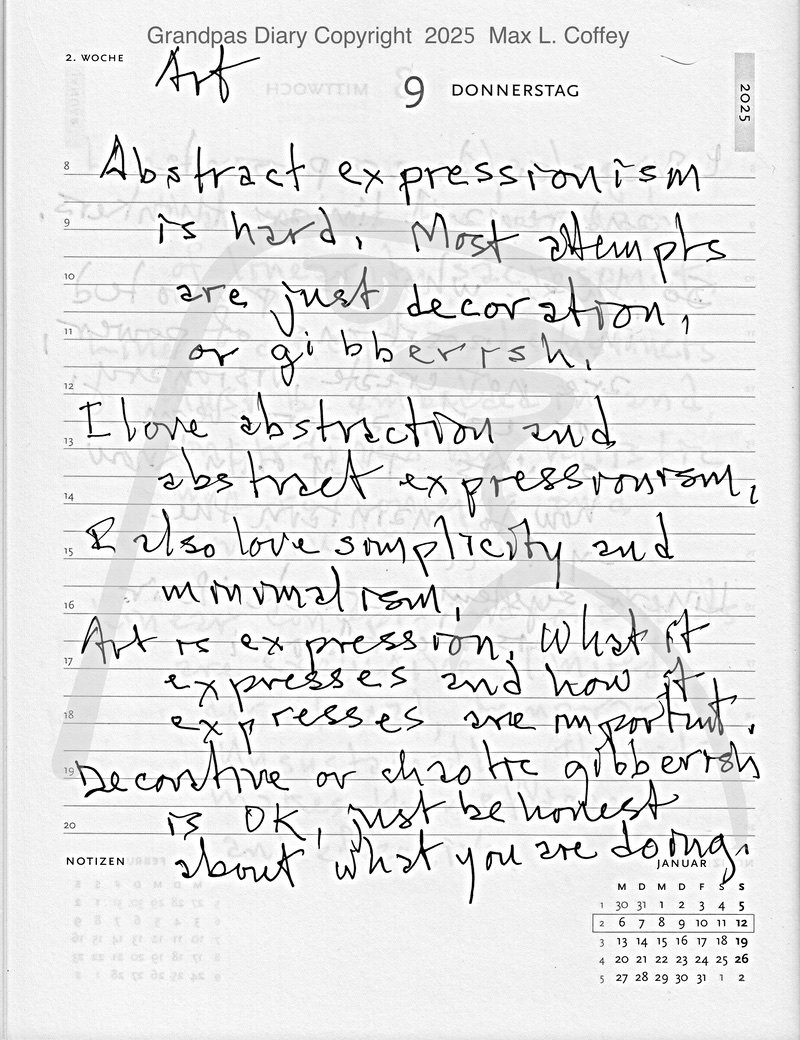 Grandpas Diary Copyright 2025 Max L. Coffey
2. WOCHE
Art
9 DONNERSTAG
2025
8 Abstract expressionism
9 is hard. Most attempts
10 are just decoration,
11 or gibberish.
12
13 I love abstraction and
abstract expressionism.
14
15 I also love simplicity and
16 minimalism.
Art is expression. What it
17 expresses and how it
18 expresses are important.
19 Decorative or chaotic gibberish
20 is OK, just be honest
about what you are doing.
NOTIZEN
JANUAR
M D M D F S S
1 30 31 1 2 3 4 5
2 6 7 8 9 10 11 12
3 13 14 15 16 17 18 19
4 20 21 22 23 24 25 26
5 27 28 29 30 31 1 2